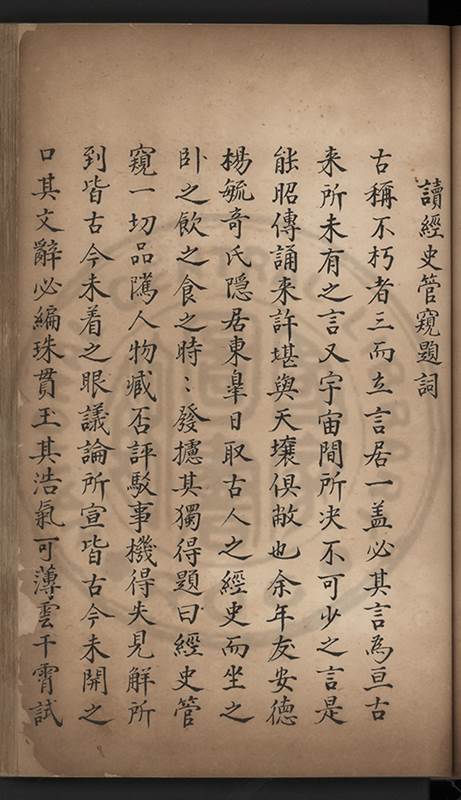 讀經史管窺題詞
古稱不朽者三而立言居一盖必其言為亘古
来所未有之言又宇宙間所决不可少之言是
能昭傳誦来許堪與天壤俱敝也余年友安德
楊毓奇氏隱居東臯日取古人之經史而坐之
卧之飲之食之時〻發攄其獨得題曰經史管
窺一切品隲人物臧否評駁事機得失見解所
到皆古今未着之眼議論所宣皆古今未開之
口其文辭必編珠貫玉其浩氣可薄雲干霄試